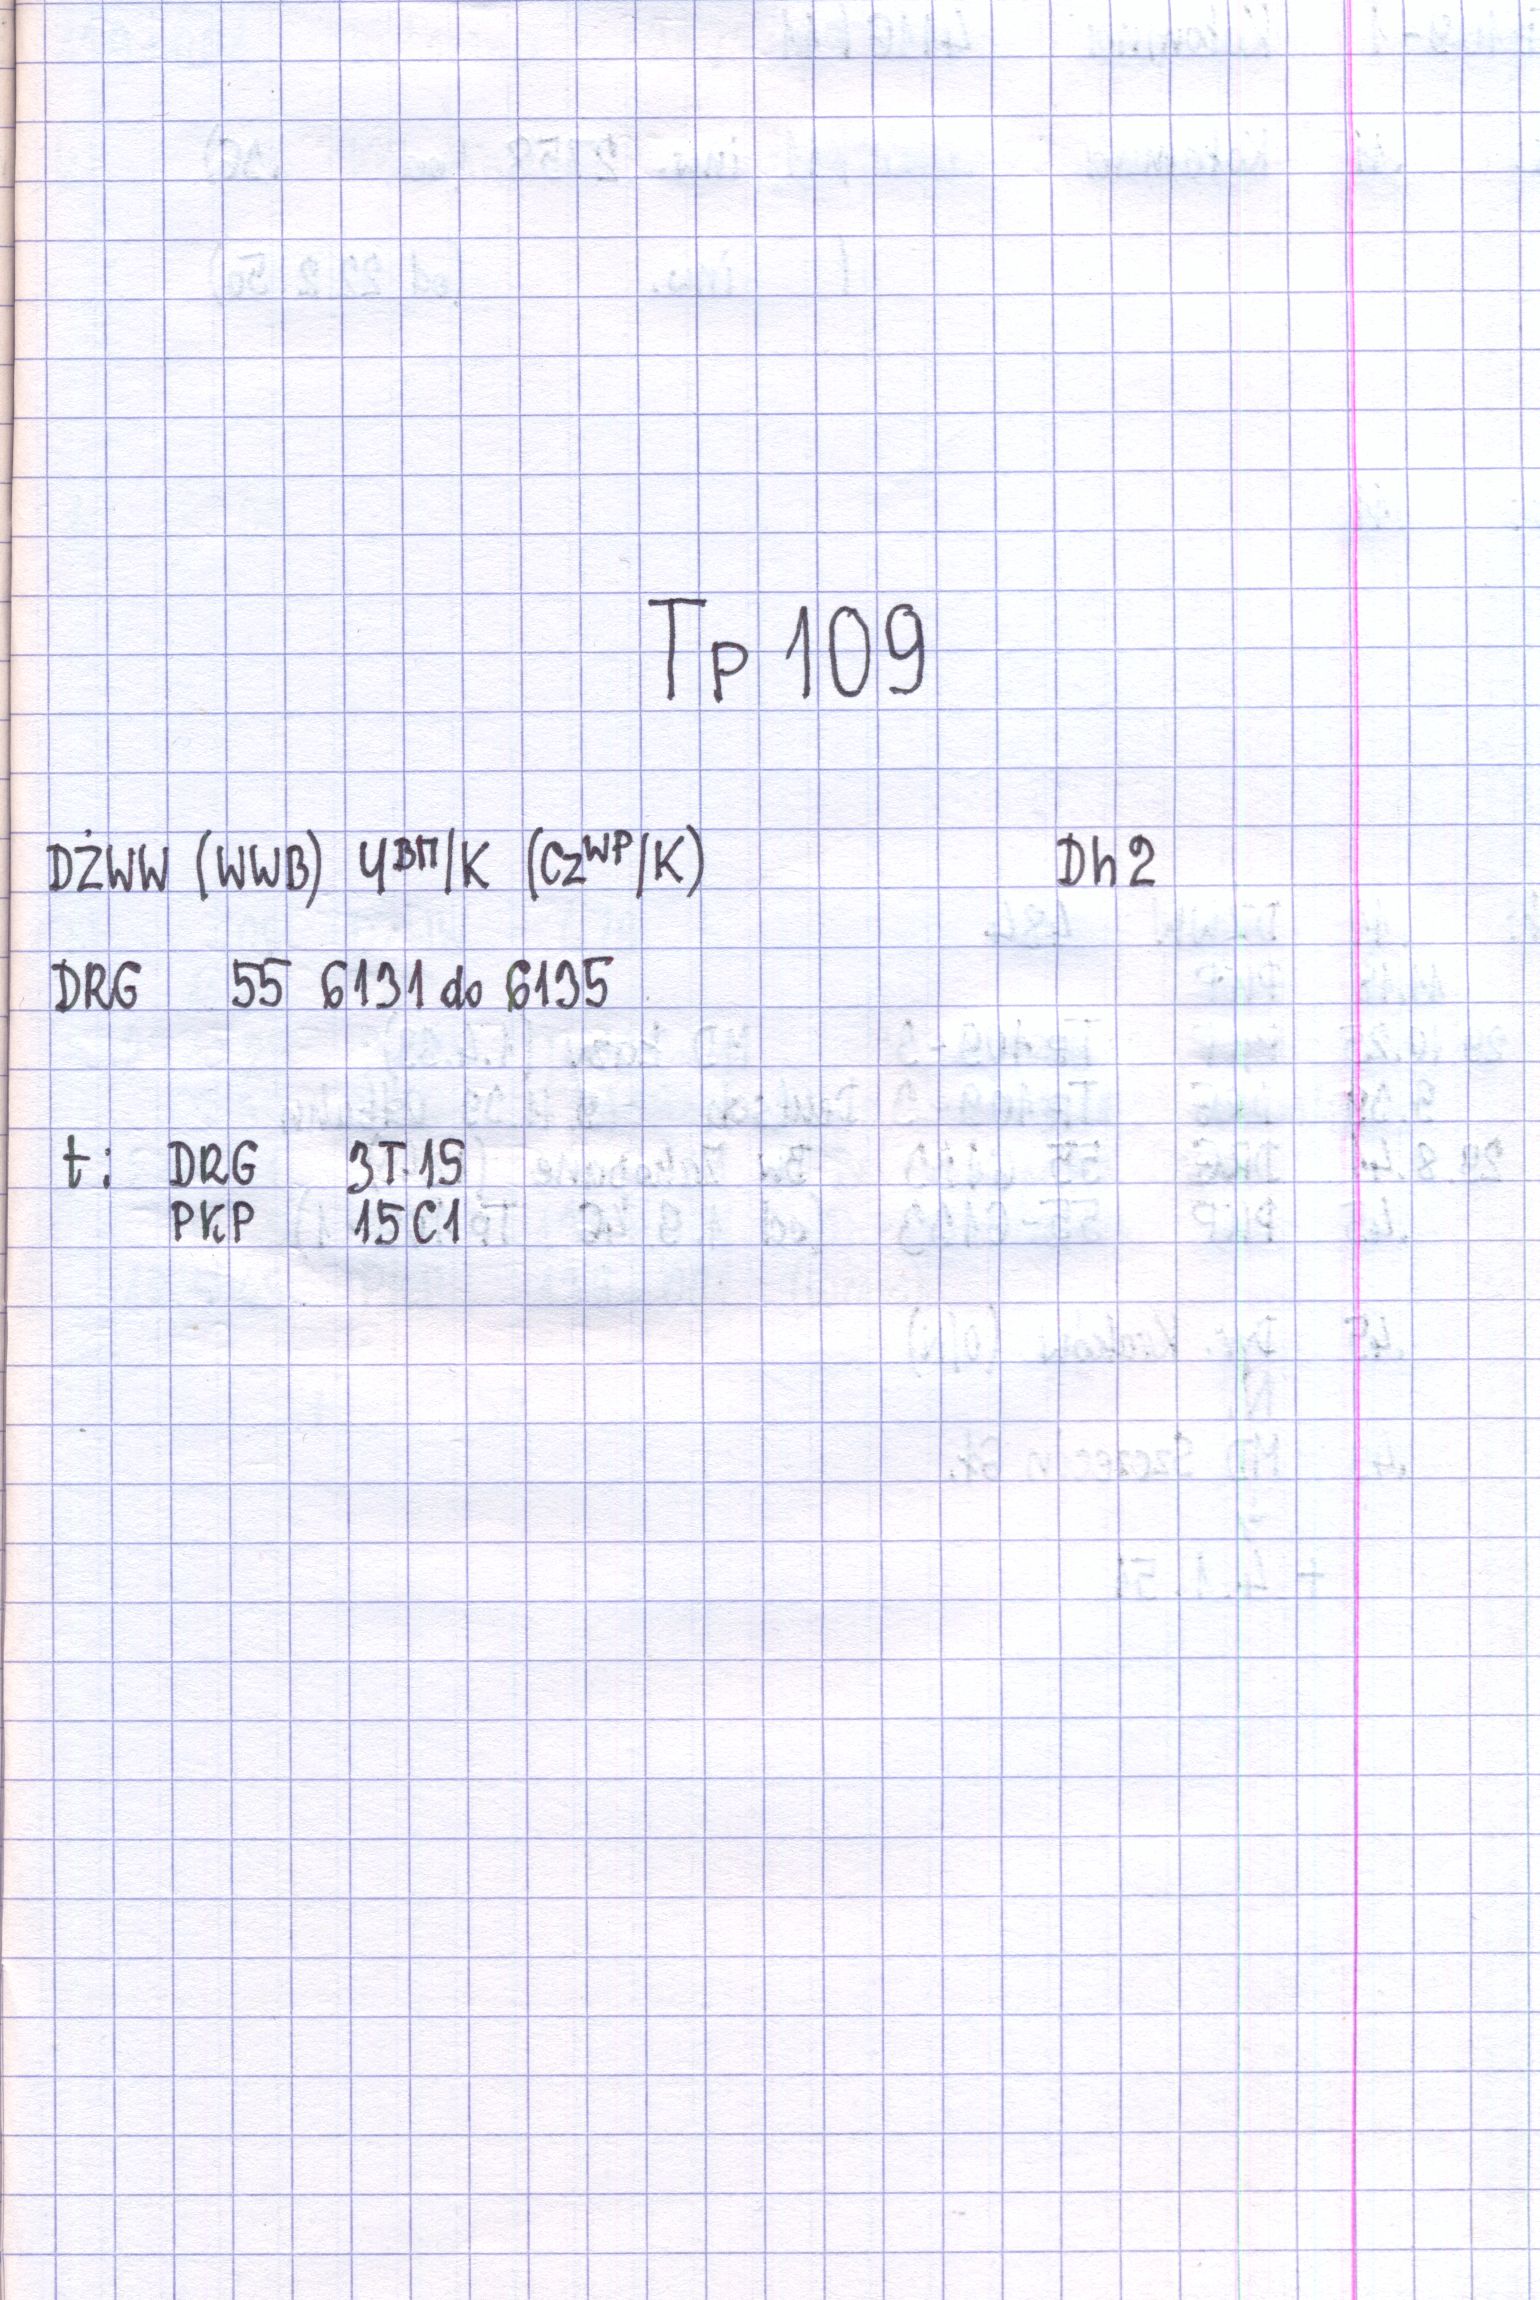 Tp 109
DŻWW (WWB) Ч ВП/К (Cz WP/K) Dh2
DRG 55 6131 do 6135
t: DRG 3T 15
PKP 15C1